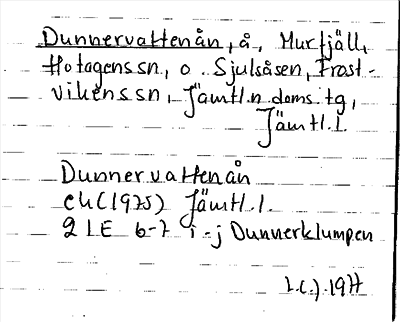 Dunnervattenån, å, Murfjäll,
Hotagens sn, o. Sjulsåsen, Frost-
vikens sn, Jämtl.n doms.tg,
Jämtl.l.
Dunnervattenån
ek (1975) Jämtl.l.
21E 6-7 i-j Dunnerklumpen
1977